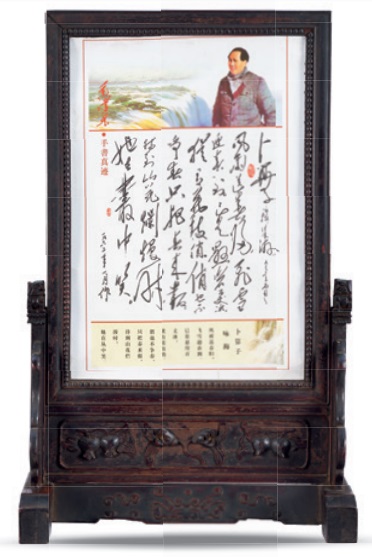 毛泽东
•手書真迹
卜算子 咏梅
风雨送春归飞雪
迎春到已是悬崖百丈冰
犹有花枝俏俏也不
争春只把春来报
待到山花烂熳时
她在丛中笑
卜算子
咏梅
風雨送春歸，
飛雪迎春到。
已是懸崖百
丈冰，
猶有花枝俏。
俏也不爭春，
只把春來報。
待到山花爛
漫時，
她在叢中笑。